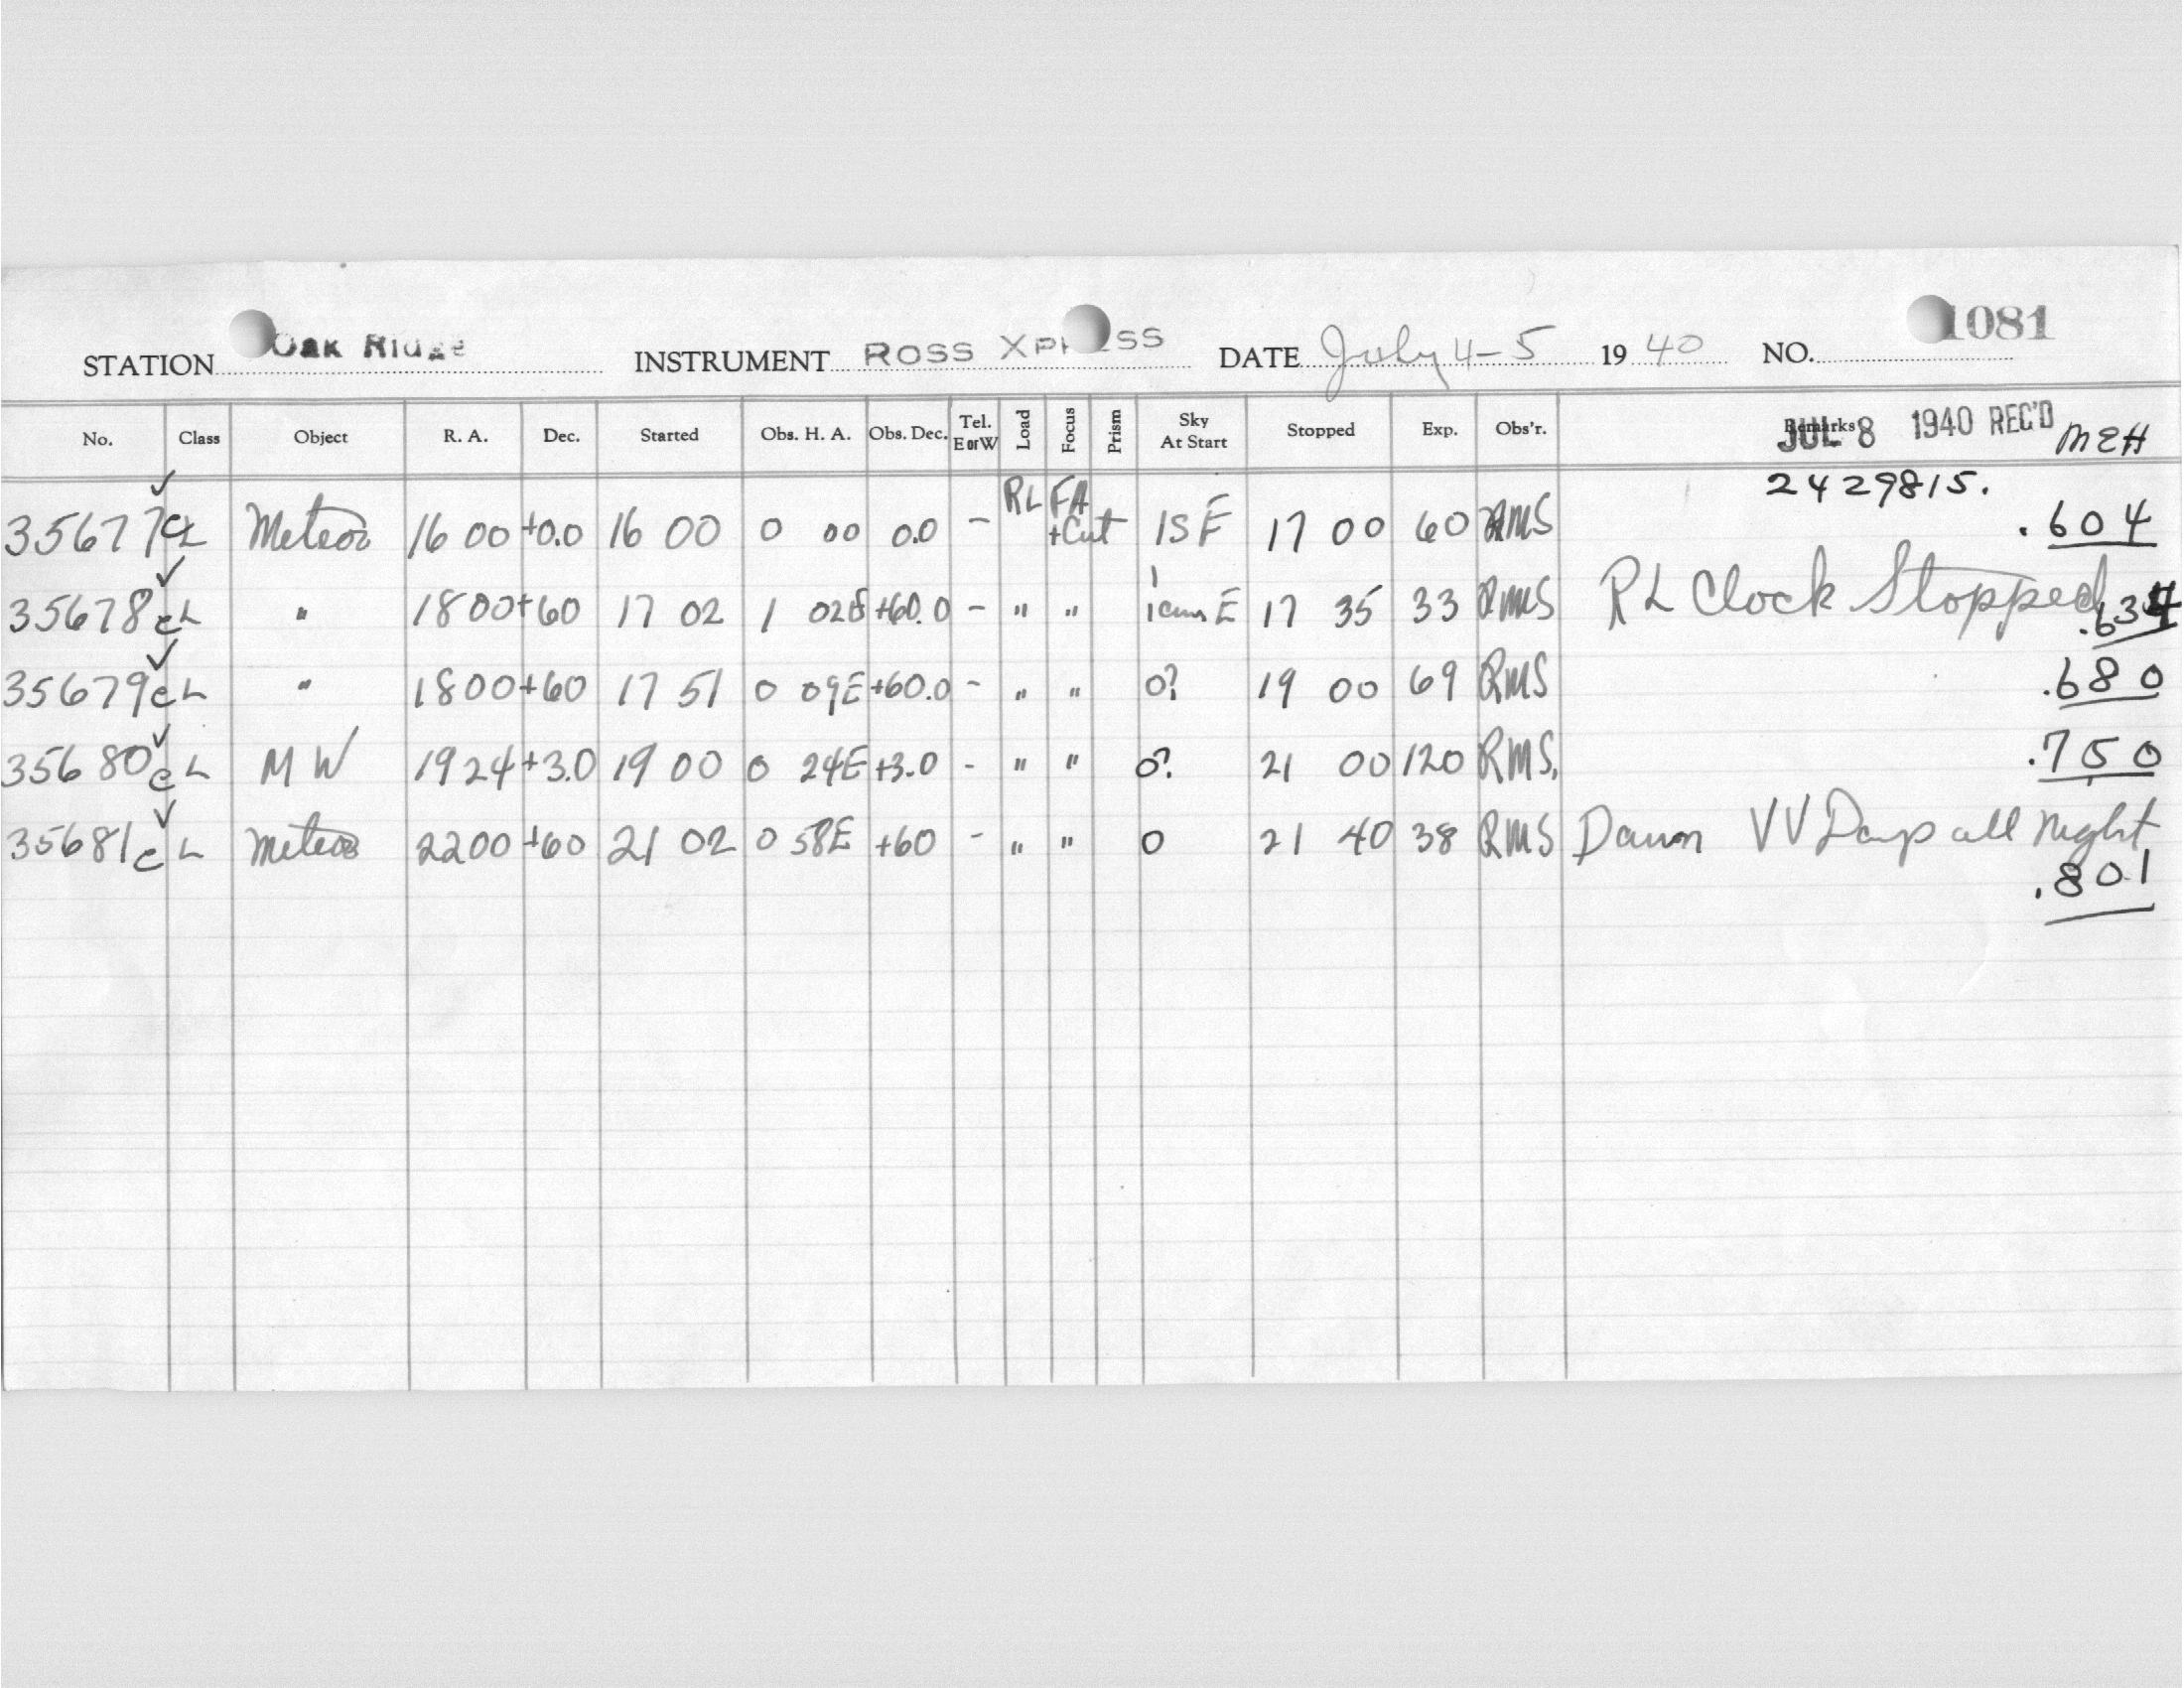 STATION Oak Ridge INSTRUMENT ROSS XPRESS DATE July 4-5 1940 NO. 1081
No. Class Object R. A. Dec. Started Obs. H. A. Obs. Dec. Tel. E or W Load Focus Prism Sky At Start Stopped Exp. Obs'r. Remarks
JUL 8 1940 REC'D MEH
2429815.
35677 c L Meteor 16 00 +0.0 16 00 0 00 0.0 - RL FA +Cut 1S F 17 00 60 RMS .604
35678 c L " 18 00 +60 17 02 1 02 +60.0 - " " E 17 35 33 RMS RL Clock Stopped .634
35679 c L " 18 00 +60 17 51 0 09E +60.0 - " " 0? 19 00 69 RMS .680
35680 c L M W 19 24 +3.0 19 00 0 24E +3.0 - " " 0? 21 00 120 RMS. .750
35681 c L Meteor 22 00 +60 21 02 0 58E +60 - " " 0 21 40 38 RMS Dawn VV Damp all night
.801